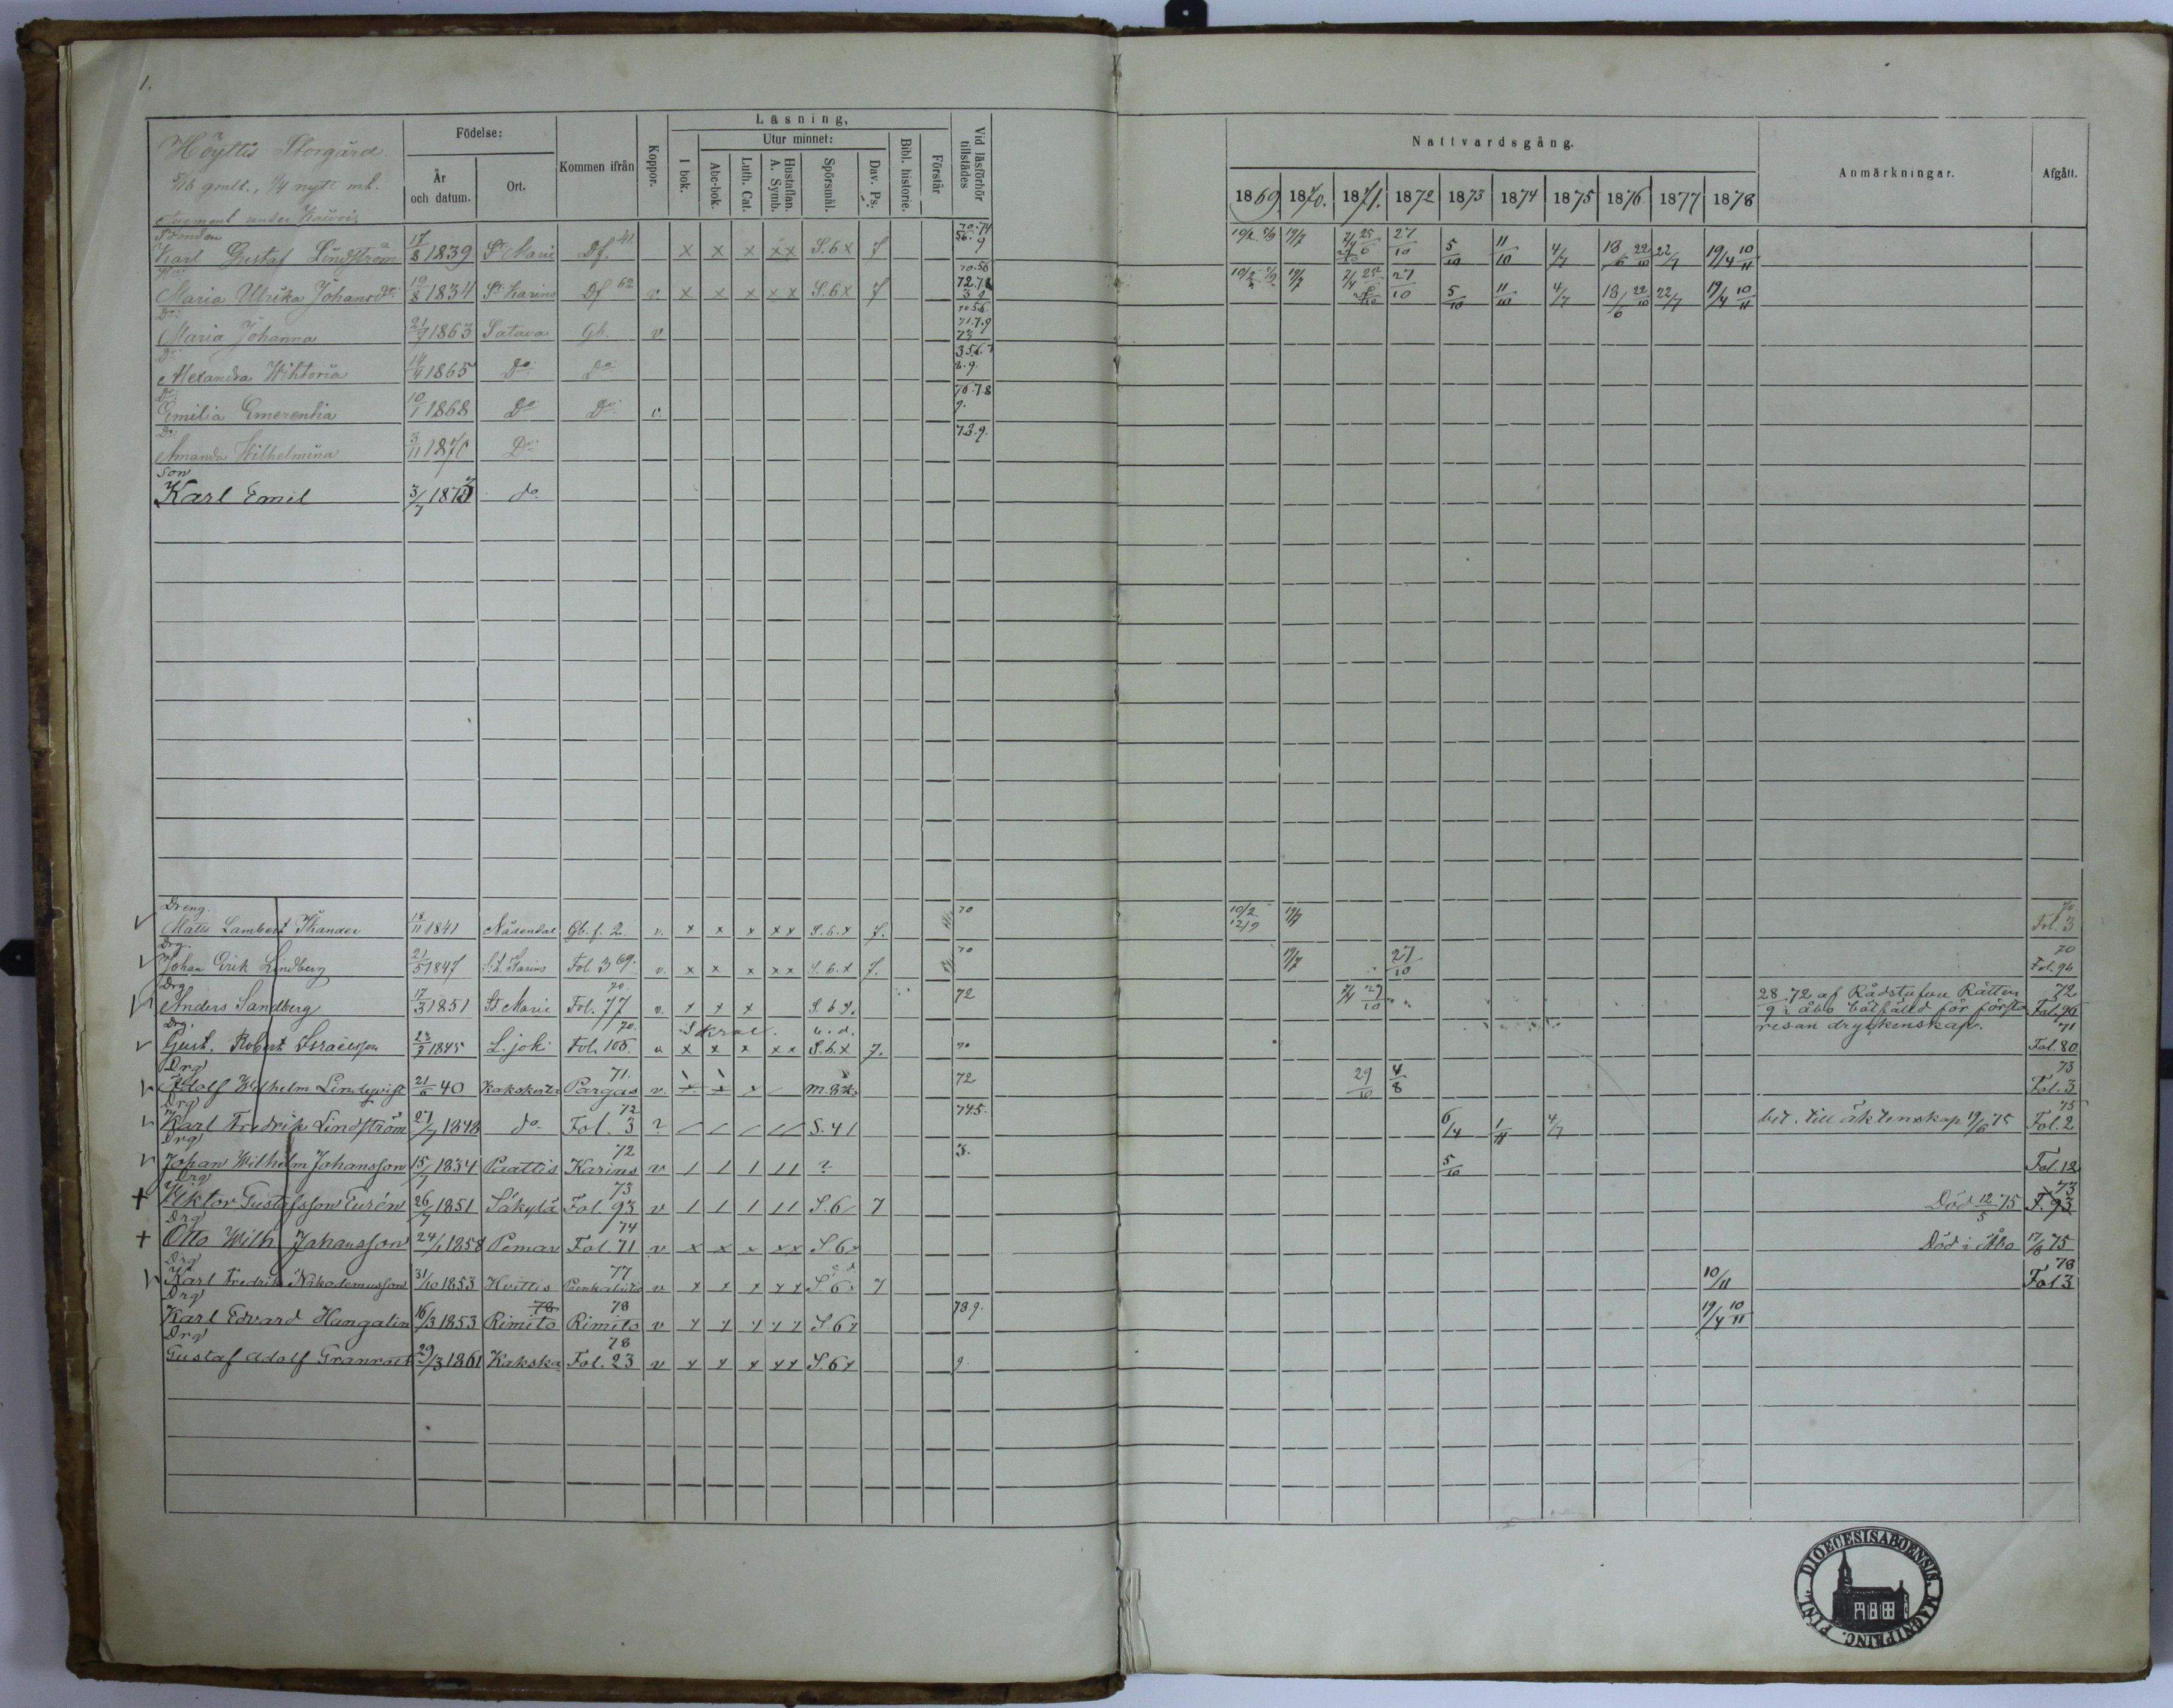 1.
Höyttis Storgård.
5/16 gmlt., 1/4 nytt mt.
Augment under Kauris
Födelse: År och datum. Ort.
Kommen ifrån
Koppor.
Läsning,
I bok.
Utur minnet:
Abc-bok. Luth. Cat. Hustaflan. A. Symb. Spörsmål. Dav. Ps:
Bibl. historie. Förstår
Vid läsförhör tillstädes
Nattvardsgång.
1869 1870. 1871. 1872 1873 1874 1875 1876 1877 1878
Anmärkningar.
Afgått.
Bonden
Karl Gustaf Lindström 17/8 1839 St Marie Df. 41. x x x x x S.6 x 7 19/7 27/10 5/10 11/10 4/7 18/6 22/10 22/7 19/4 10/11
Maria Ulrika Johansdr 19/8 1834 St Karins Df 62 v. x x x x x S.6 x 7 19/7 27/10 5/10 11/10 4/7 18/6 22/10 22/7 19/4 10/11
Dr:
Maria Johanna 21/7 1863 Satava Gb. v
Dr:
Alexandra Wiktoria 14/4 1865 Do Do
Dr:
Emilia Emerentia 10/1 1868 Do Do v.
Dr:
Amanda Wilhelmina 3/11 1870 Do 73.9.
Son
Karl Emil 3/7 1873 do
Dreng.
Matts Lambert Thander 18/11 1841 Nådendal Gb. f. 2. v. x x x x x S.6.x 7. 70 10/2 12/9 19/7 70 Fol. 3
Drg.
Johan Erik Lindberg 21/5 1847 S:t Karins Fol. 3 69. v. x x x x x S.6.x 7. 70 19/7 27/10 70 Fol. 96
Drg.
Anders Sandberg 17/3 1851 St Marie 70. Fol. 77 v. x x x S.6 72 28/9 72 af Rådstufvu Rätten i Åbo bötfälld för första resan dryckenskap. 72 Fol. 96
Drg.
Gust. Robert Israelsson 1845 L. joki 70. Fol. 105. x x x x x S.6.x 7. 70 71 Fol. 80
Drg
Adolf Wilhelm Lindqvist 21/6 40 Kakskerta 71. Pargas v. 72 29/10 4/8 73 Fol. 3
Drg
Karl Fredrik Lindström 27/7 1848 do 72 Fol. 3 ? S.41 745. 6/4 1/11 4/7 bet. till äktenskap 19/6 75 75 Fol. 2
Drg
Johan Wilhelm Johansson 15/7 1834 Paattis 72 Karins v 1 1 1 11 ? 3. 5/10 Fol. 12
Drg
Viktor Gustafsson Eurén 26/7 1851 Säkylä 73 Fol. 93 v 1 1 1 11 S.6 7 Död 12/5 75 73 F. 93
Drg
Otto Wilh Johansson 24/1 1858 Pemar 74 Fol. 71 v x x x x x S.6x Död i Åbo 17/8 75
Drg
Karl Fredrik Nikodemusson 31/10 1853 Hvittis 77 v x x x x x S.6. 7 10/11 78 Fol. 3
Drg
Karl Edvard Hangalin 16/3 1853 Rimito 78 78 Rimito v S.6 789. 19/4 10/11
Drg
Gustaf Adolf Granroth 29/3 1861 Kakska 78 Fol. 23 v x x x x x S.6x 9.
DIOECESIS ABOENSIS. MAGNI PRINC. FINL.